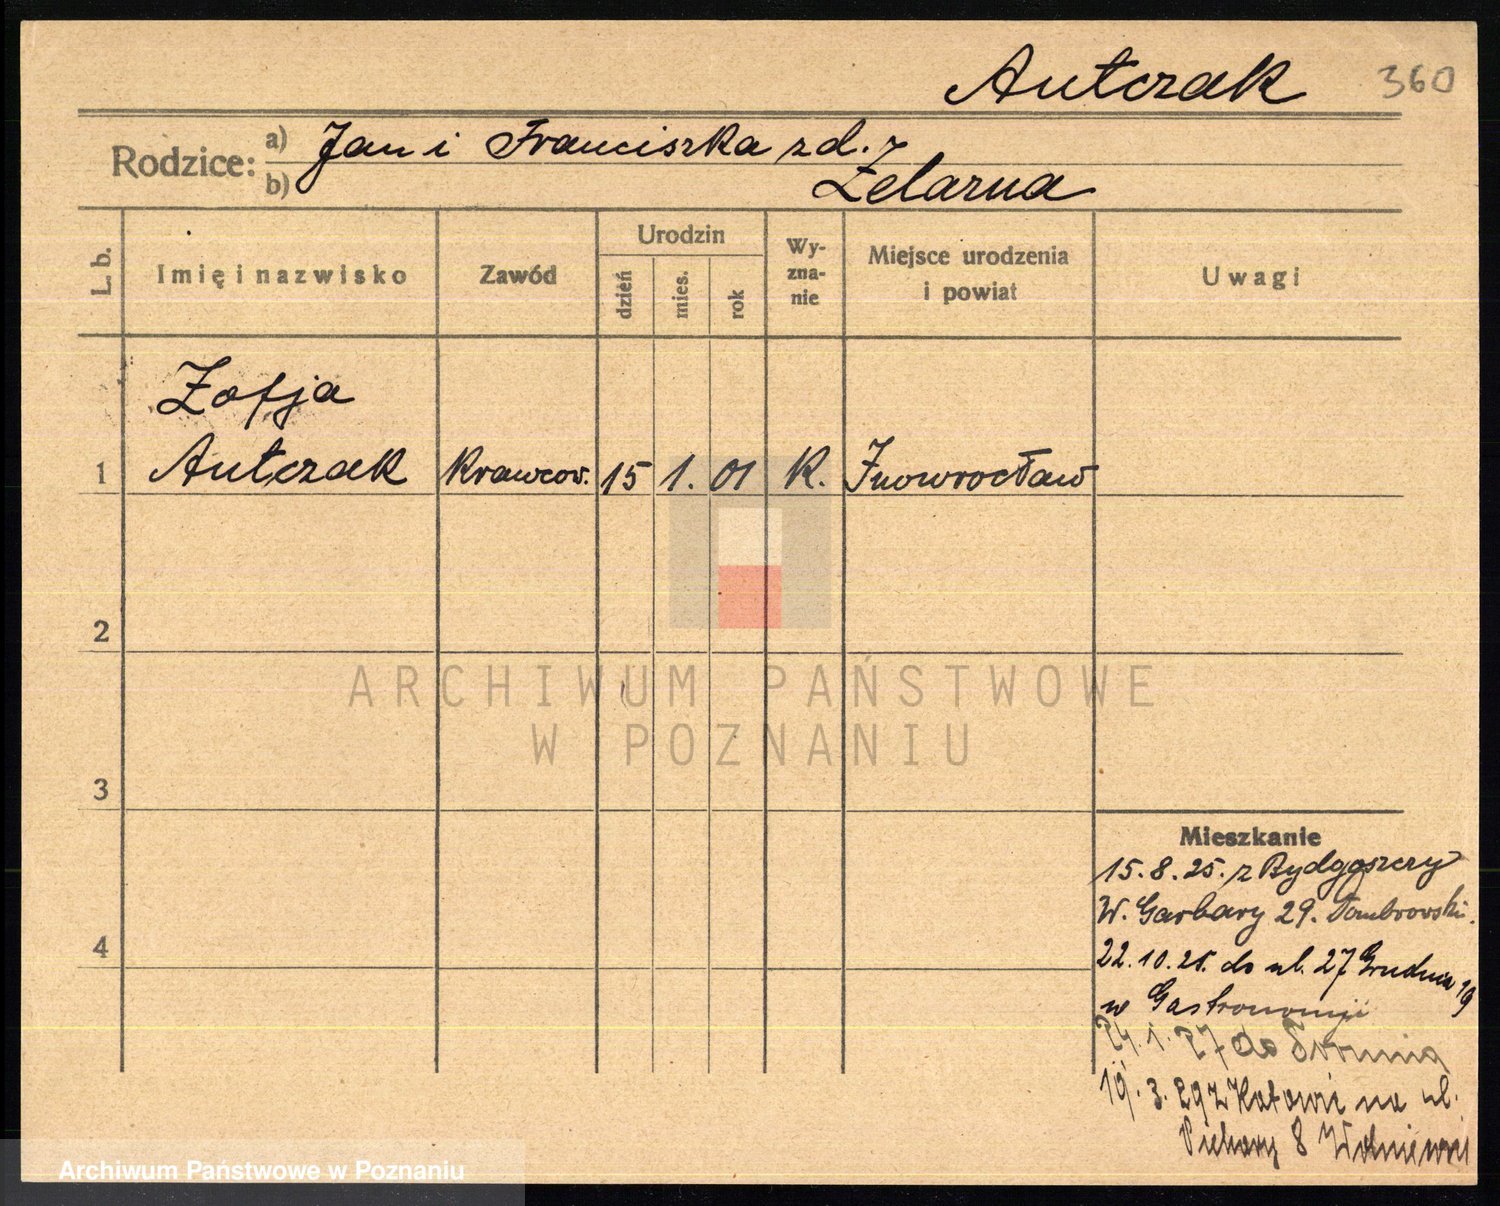 Antczak 360
Rodzice: a) Jan i Franciszka zd. z
b) Żelazna
L. b. Imię i nazwisko Zawód Urodzin dzień mies. rok Wyznanie Miejsce urodzenia i powiat Uwagi
Zofja
1 Antczak Krawcow. 15 1. 01 K. Inowrocław
2
3
4
Mieszkanie
15.8.25. z Bydgoszczy
W. Garbary 29.
22.10.25. do ul. 27 Grudnia 19
w Gastronomji
24.1.27 do Torunia
19.3.29 z Katowic na ul.
Piekary 8
ARCHIWUM PAŃSTWOWE
W POZNANIU
Archiwum Państwowe w Poznaniu